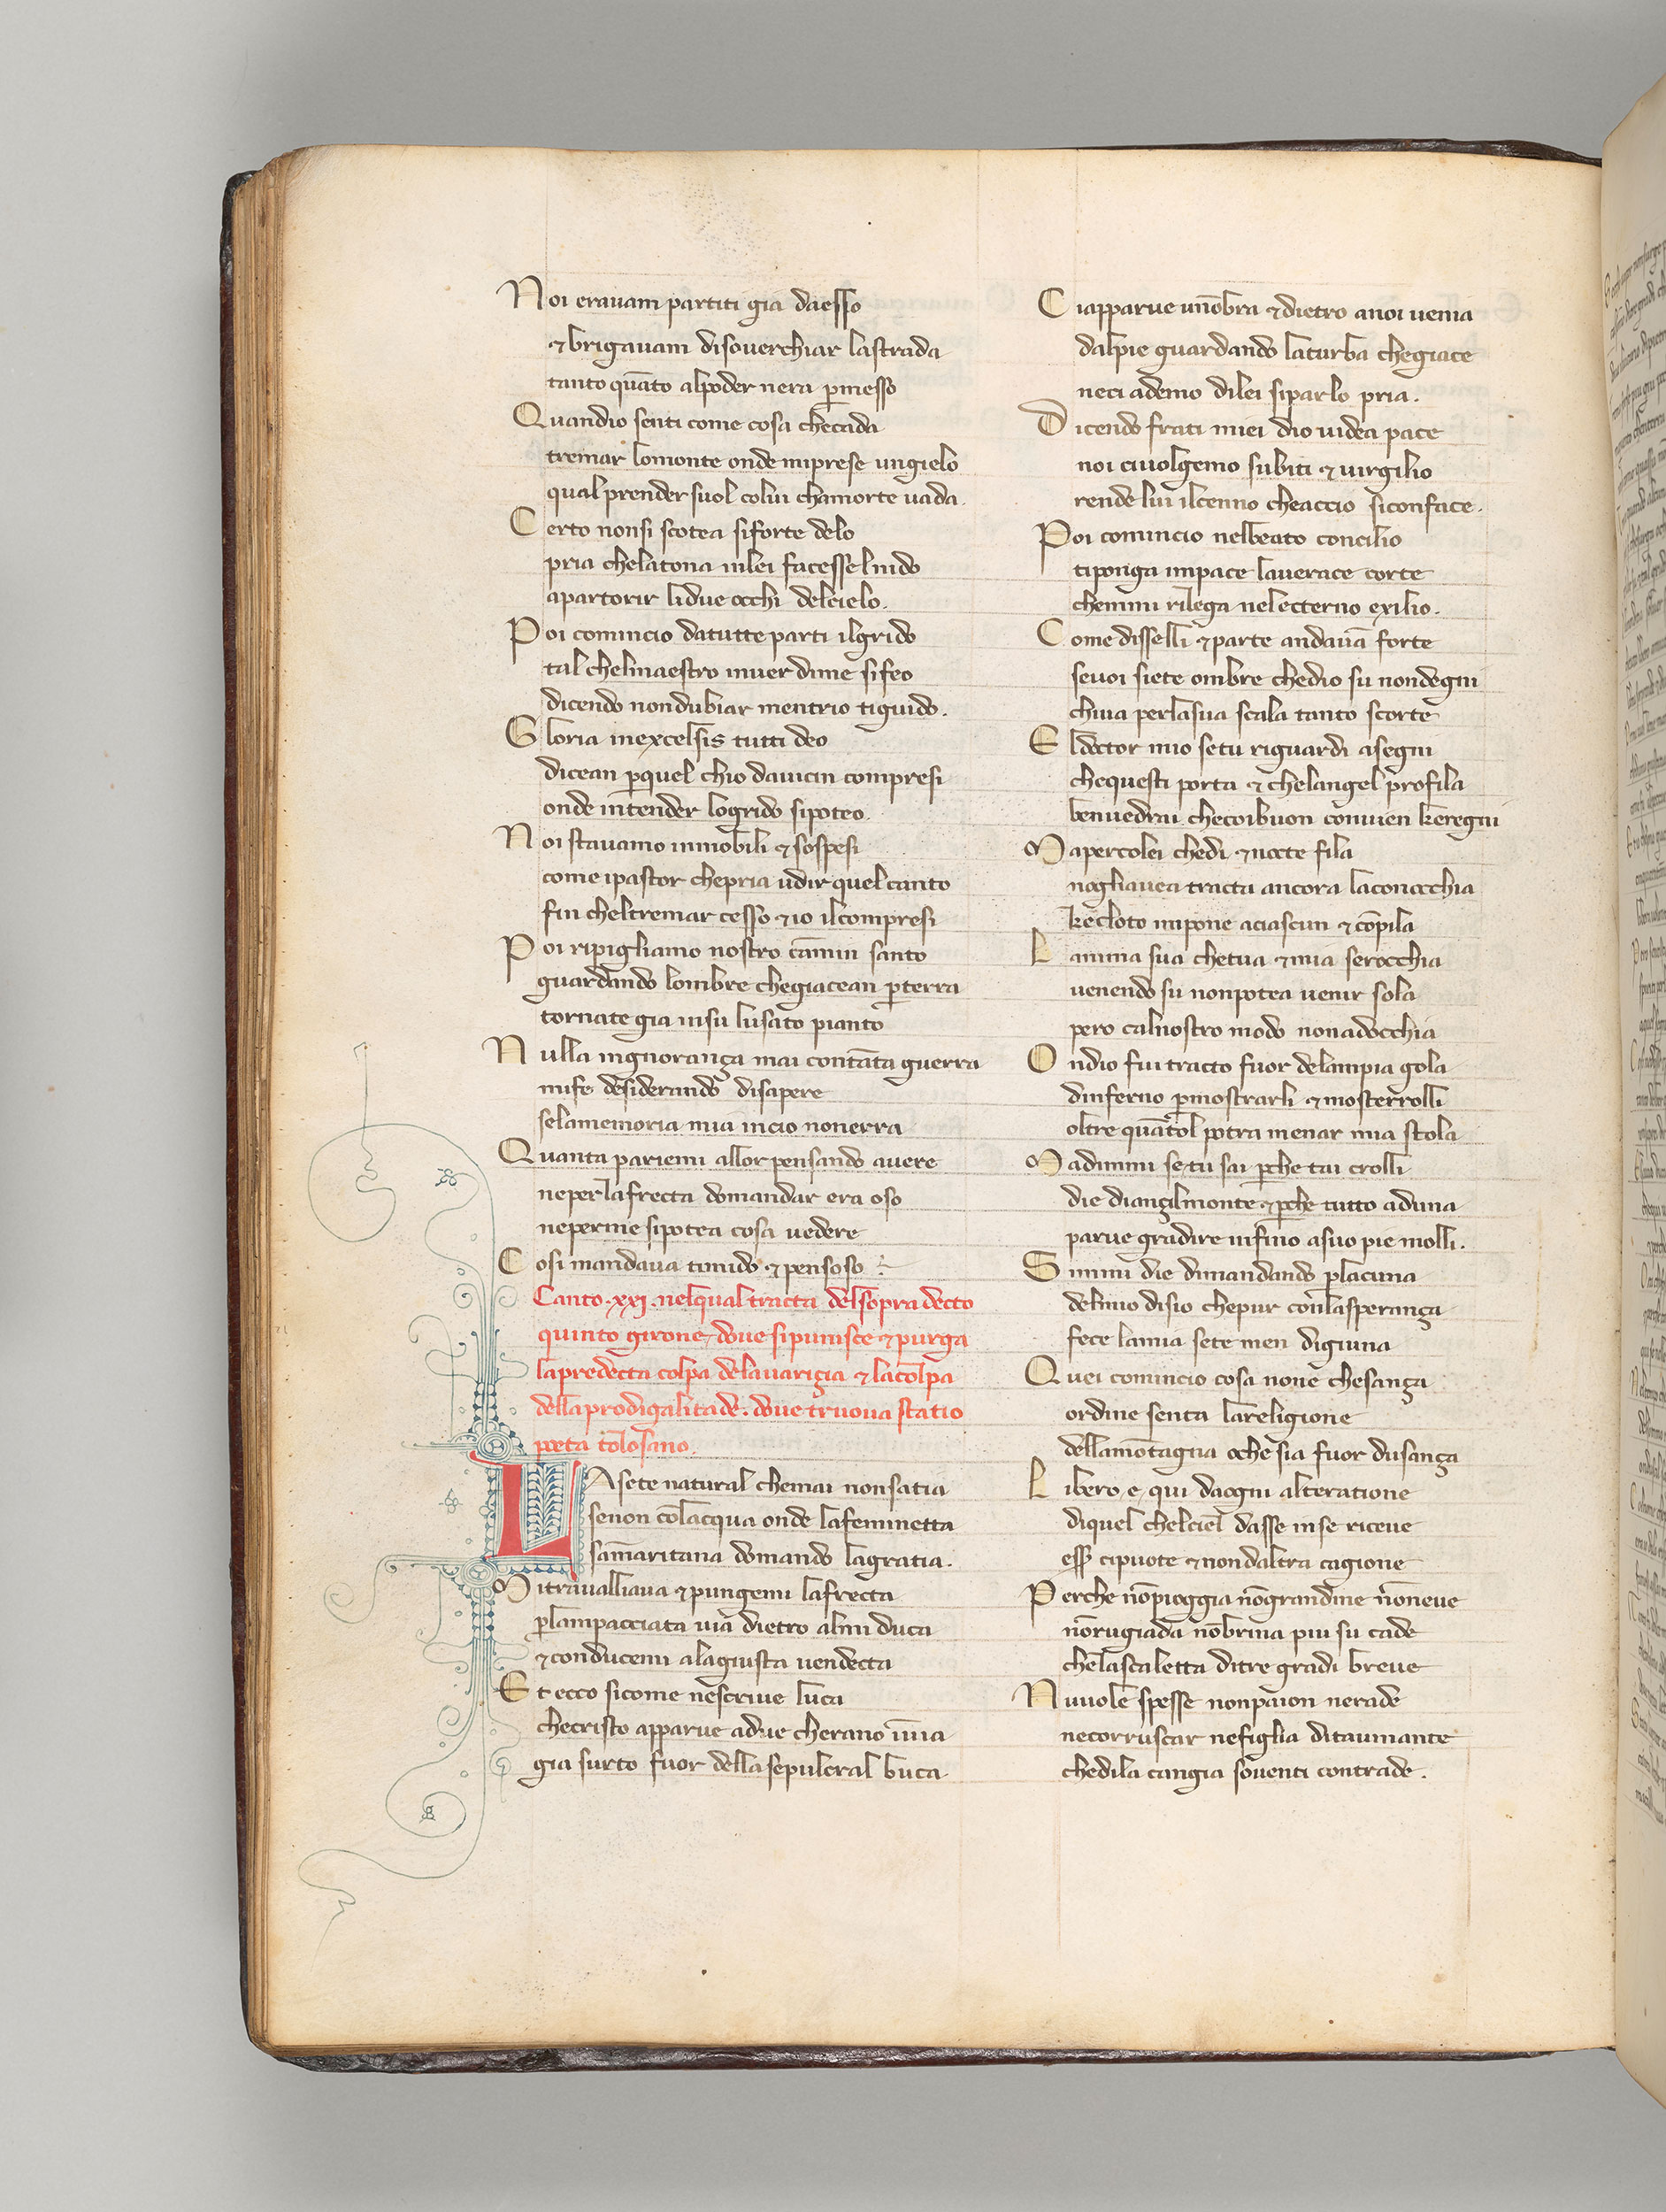 Noi eravam partiti gia daesso
⁊ brigavam disoverchiar lastrada
tanto quāto alpoder nera p̄messo
Quandio senti come cosa checada
tremar lomonte onde miprese ungielo
qual prender suol colui chamorte vada.
Certo nonsi scotea siforte delo
pria chelatona inlei facesselnido
apartorir lidue occhi delcielo.
Poi comincio datutte parti ilgrido
tal chelmaestro inver dime sifeo
dicendo nondubiar mentrio tiguido.
Gloria inexcelsis tutti deo
dicean p̄quel chio davicin compresi
onde intender logrido sipoteo.
Noi stavamo immobili ⁊ sospesi
come ipastor chepria udir quelcanto
fin cheltremar cesso ⁊ io ilcompresi
Poi ripigliamo nostro camin santo
guardando lombre chegiacean p̄terra
tornate gia insu lusato pianto
Nulla ingnoranҫa mai contāta guerra
mife desiderando disapere
selamemoria mia incio nonerra
Quanta pariemi allor pensando avere
neperlafrecta domandar era oso
neperme sipotea cosa vedere
Cosi mandava timido ⁊ pensoso
Canto .xxj. nelqual tracta delsopradecto
quinto girone, dove sipunisce ⁊ purga
lapredecta colpa delavariҫia ⁊ lacolpa
dellaprodigalitade. dove truova statio
poeta tolosano.
LAsete natural chemai nonsatia
senon cōlacqua onde lafeminetta
samaritana domando lagratia.
Mitravalliava ⁊ pungemi lafrecta
p̄lampacciata via dietro almi duca
⁊ conducemi alagiusta vendecta
Et ecco sicome nescrive luca
checristo apparve adue cherano ī via
gia surto fuor dellasepulcral buca
Ciapparve unōbra ⁊ dietro anoi venia
dalpie guardando laturba chegiace
neci ademo dilei siparlo pria.
Dicendo frati miei dio videa pace
noi civolgemo subiti ⁊ virgilio
rende lui ilcenno cheaccio siconface.
Poi comincio nelbeato concilio
tiponga impace laverace corte
chemmi rilega nelecterno exilio.
Come disselli ⁊ parte andavā forte
sevoi siete ombre chedio su nondegni
chiva perlasua scala tanto scorte
Eldoctor mio setu riguardi asegni
chequesti porta ⁊ chelangel profila
benvedrai checoibuon convien keregni
Mapercolei chedi ⁊ nocte fila
nogliavea tracta ancora laconocchia
kecloto impone aciascun ⁊ cōpila
Lanima sua chetua ⁊ mia serocchia
venendo su nonpotea venir sola
pero calnostro modo nonadocchia
Ondio fui tracto fuor delampia gola
dinferno p̄mostrarli ⁊ mosterrolli
oltre quātol potra menar mia scola
Madimmi setu sai p̄che tai crolli
die dianҫilmonte ⁊ p̄che tutto aduna
parve gradire infino asuo pie molli.
Simmi die dimandando p̄lacruna
delmio disio chepur cōnlasperanҫa
fece lamia sete men digiuna
Quei comincio cosa none chesanҫa
ordine senta lareligione
dellamōtagna oche sia fuor dusanҫa
Libero e qui daogni alteratione
diquel chelciel dasse inse riceve
esser cipuote ⁊ nondaltra cagione
Perche nōpioggia nōgrandine nōneve
nōrugiada nōbrina piu su cade
chelascaletta ditre gradi breve
Nuvole spesse nonpaion nerade
necorruscar nefiglia ditaumante
chedila cangia soventi contrade.